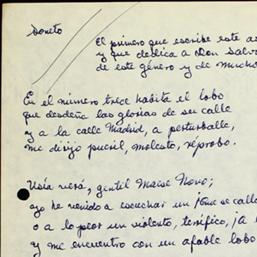 Soneto
El primero que escribe este a
y que dedica a Don Salva
de este género y de mucho
En el número trece habita el lobo
que desdeña las glorias de su calle
y a la calle Madrid, a perturballe,
me dirijo pueril, molesto, réprobo.
Usía verá, gentil Maese Novo;
yo he venido a escuchar un
o a lo peor un violento, terrífico, ¡a
y me encuentro con un afable lobo